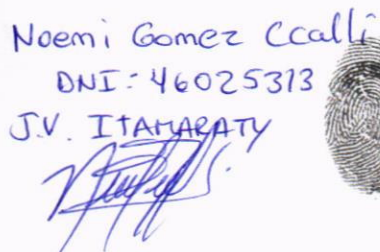 Noemi Gomez Ccalli
DNI: 46025313
J.V. ITAMARATY